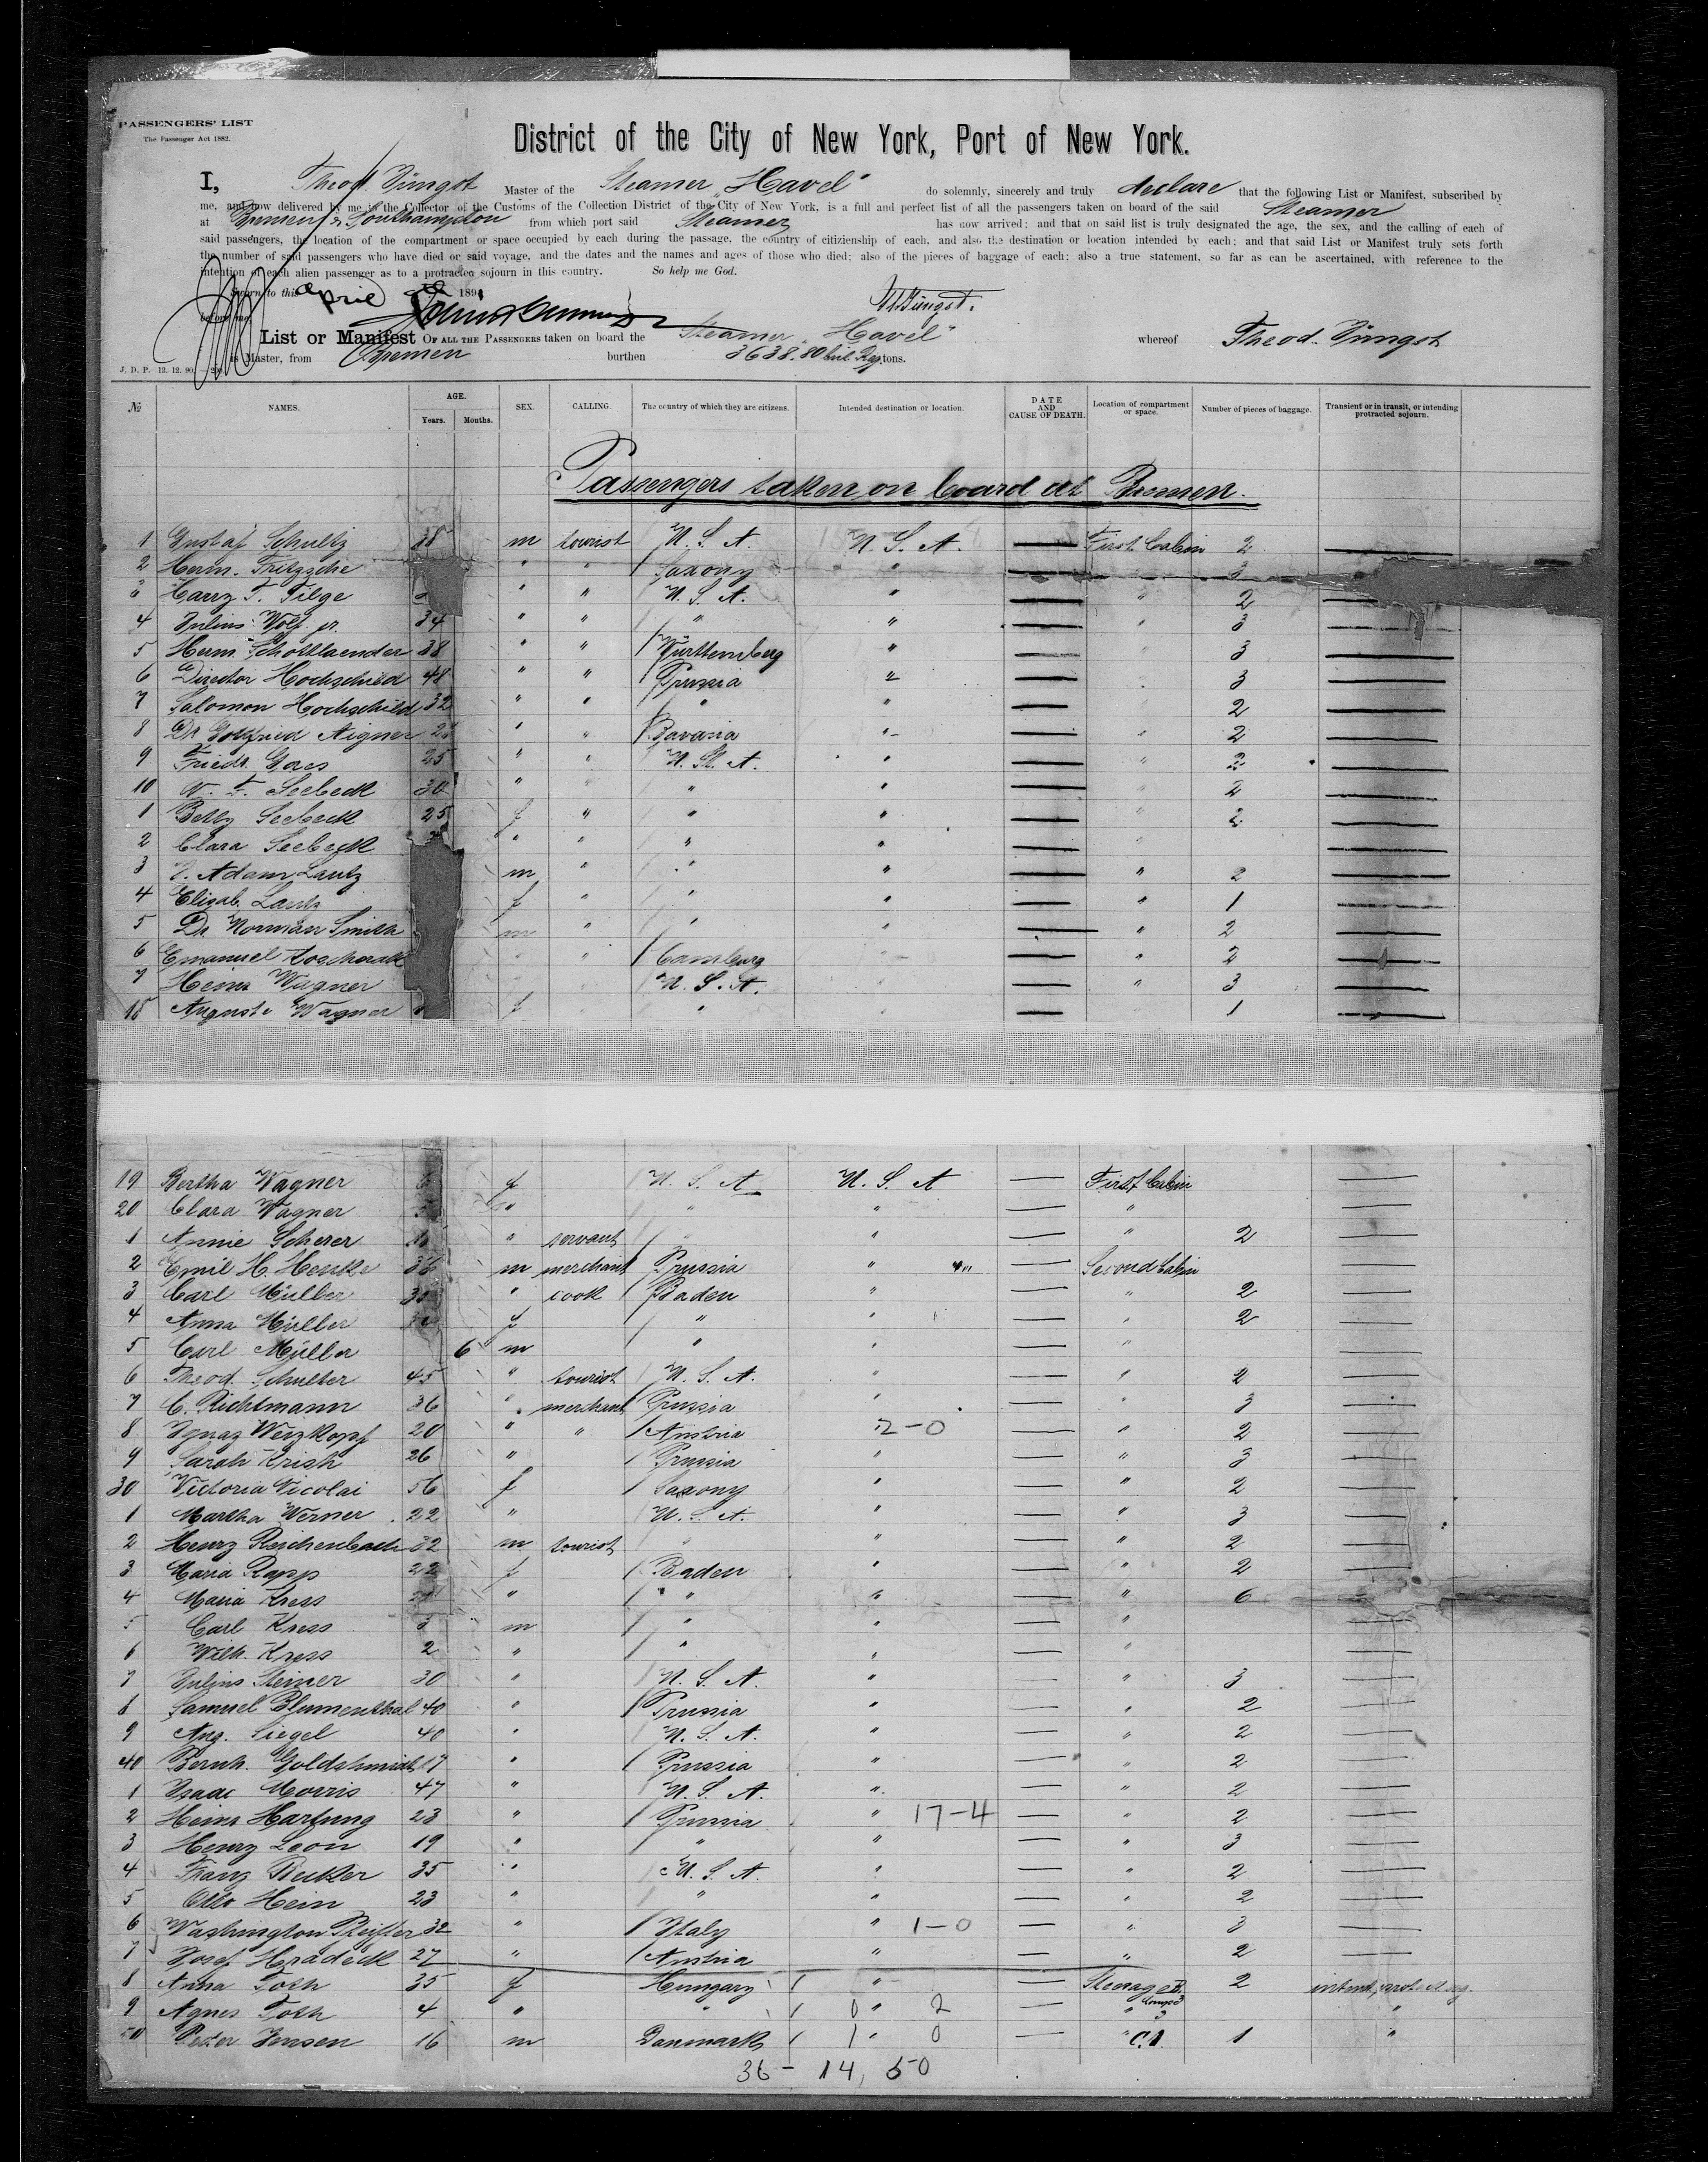 PASSENGERS' LIST
The Passenger Act 1882.
District of the City of New York, Port of New York.
I, Theod. Jüngst Master of the Steamer „Havel" do solemnly, sincerely and truly declare that the following List or Manifest, subscribed by
me, and now delivered by me to the Collector of the Customs of the Collection District of the City of New York, is a full and perfect list of all the passengers taken on board of the said Steamer
at Bremen & Southampton from which port said Steamer has now arrived; and that on said list is truly designated the age, the sex, and the calling of each of
said passengers, the location of the compartment or space occupied by each during the passage, the country of citizienship of each, and also the destination or location intended by each; and that said List or Manifest truly sets forth
the number of said passengers who have died or said voyage, and the dates and the names and ages of those who died; also of the pieces of baggage of each; also a true statement, so far as can be ascertained, with reference to the
intention of each alien passenger as to a protracted sojourn in this country. So help me God.
Sworn to this April 189
before me
Th. Jüngst.
List or Manifest OF ALL THE PASSENGERS taken on board the Steamer „Havel" whereof Theod. Jüngst
is Master, from Bremen burthen 3638.80 brit. Reg. tons.
J. D. P. 12. 12. 90.
№ NAMES. AGE. Years. Months. SEX. CALLING. The country of which they are citizens. Intended destination or location. DATE AND CAUSE OF DEATH. Location of compartment or space. Number of pieces of baggage. Transient or in transit, or intending protracted sojourn.
Passengers taken on board at Bremen.
1 Gustaf Schultz 38 m tourist U. S. A. U. S. A. First Cabin 2
2 Herm. Fritzsche " " Saxony " 3
3 Harry T. Tilge " " U. S. A. " " 2
4 Julius Wolf jr. 34 " " " " " 3
5 Herm. Schottlaender 38 " " Württemberg " " 3
6 Director Hochschild 48 " " Prussia " " 3
7 Salomon Hochschild 32 " " " " " 2
8 Dr. Gottfried Aigner " " Bavaria " " 2
9 Friedr. Goes 25 " " U. St. A. " " 2
10 W. F. Seebeck 30 " " " " " 2
1 Betty Seebeck 25 f " " " " 2
2 Clara Seebeck " " " "
3 J. Adam Lautz m " " " " 2
4 Elisab. Lautz f " " " " 1
5 Dr. Norman Smith m " " " " 2
6 Emanuel " " 2
7 Heinr. Wagner U. S. A. " 3
18 Auguste Wagner f " 1
19 Bertha Wagner f U. S. A U. S. A First Cabin
20 Clara Wagner " " " "
1 Annie Scherer " servant " " " 2
2 Emil H. Henke 36 m merchant Prussia " Second Cabin
3 Carl Müller " cook Baden " " 2
4 Anna Müller f " " " 2
5 Carl Müller 6 m " " "
6 Theod. Schulter 45 " tourist U. S. A. " " 2
7 C. Richtmann 36 " merchant Prussia " " 3
8 Ignaz Weizkopf 20 " " Austria 2-0 " 2
9 Sarah Krish 26 " Prussia " " 3
30 Victoria Nicolai 56 f Saxony " " 2
1 Martha Werner 22 " U. S. A. " " 3
2 Henry Reichenbach 32 m tourist " " " 2
3 Maria Rapp 22 f Baden " " 2
4 Maria Kress " " " " 6
5 Carl Kress 3 m " " "
6 Wilh. Kress 2 " " " "
7 Julius Steiner 30 " U. S. A. " " 3
8 Samuel Blumenthal 40 " Prussia " " 2
9 Aug. Siegel 40 " U. S. A. " " 2
40 Bernh. Goldschmidt 17 " Prussia " " 2
1 Isaac Morris 47 " U. S. A. " " 2
2 Heinr. Hartung 23 " Prussia " 17-4 " 2
3 Henry Leon 19 " " " " 3
4 Franz Becker 35 " U. S. A. " " 2
5 Otto Hein 23 " " " " 2
6 Washington Pfeiffer 32 " Italy " 1-0 " 3
7 Josef Hradeck 27 " Austria " " 2
8 Anna Toth 35 f Hungary " Steerage B. 2 intend. protr.
9 Agnes Toth 4 " " 0 " 2 " "
50 Peter Jensen 16 m Danmark 1 " 0 " C.1. 1 "
36 - 14, 50